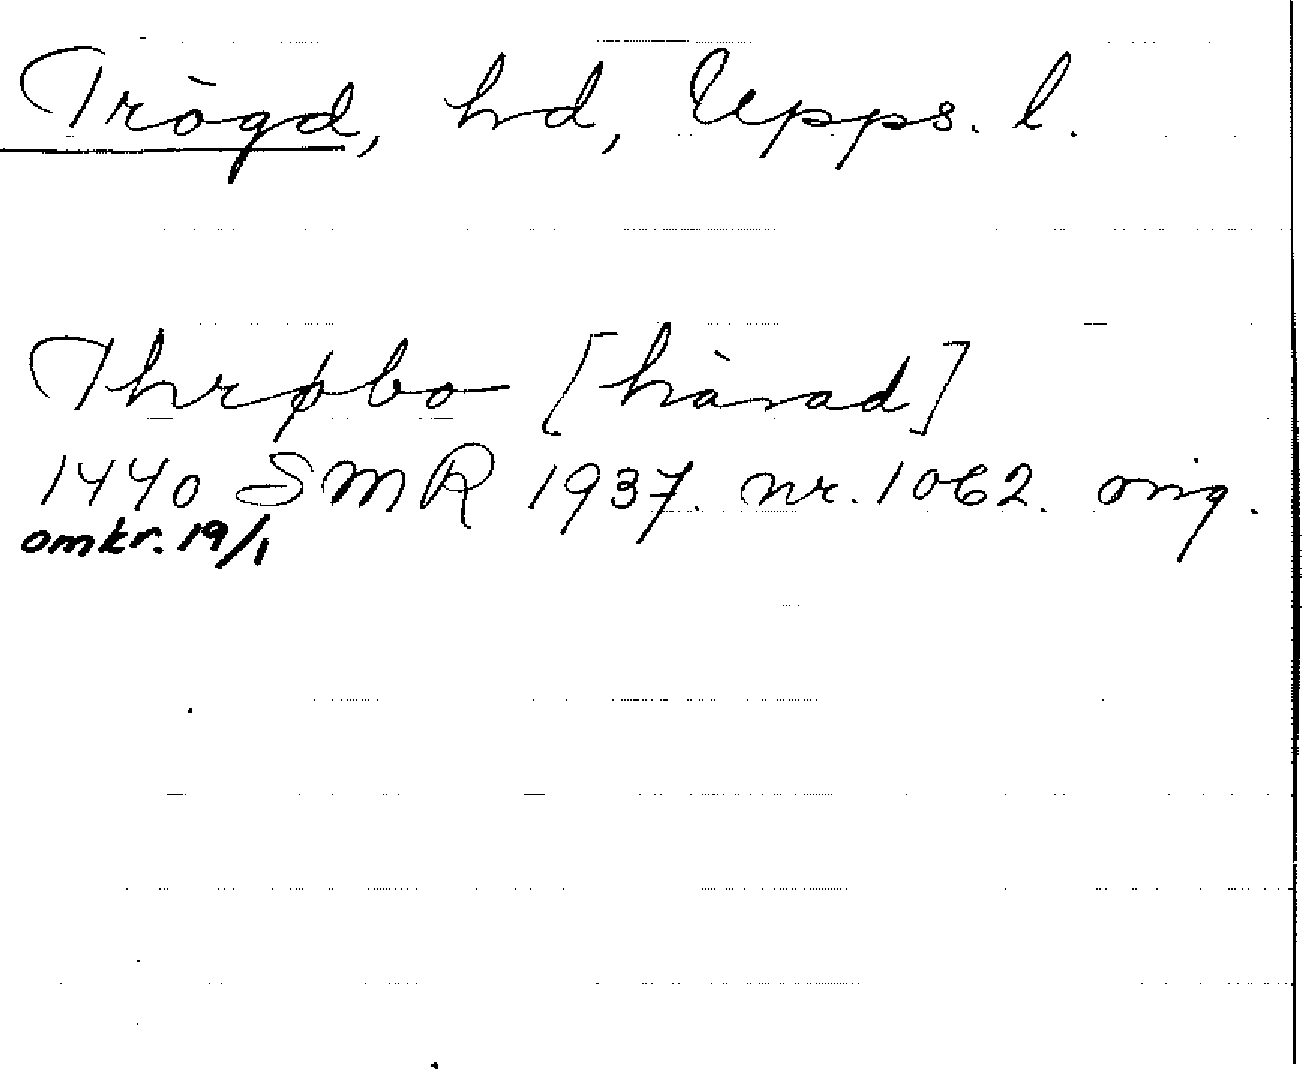 Trögd, hd, Upps. l.
Thrøbo [härad]
1440 SMR 1937. nr. 1062. orig.
omkr. 19/1